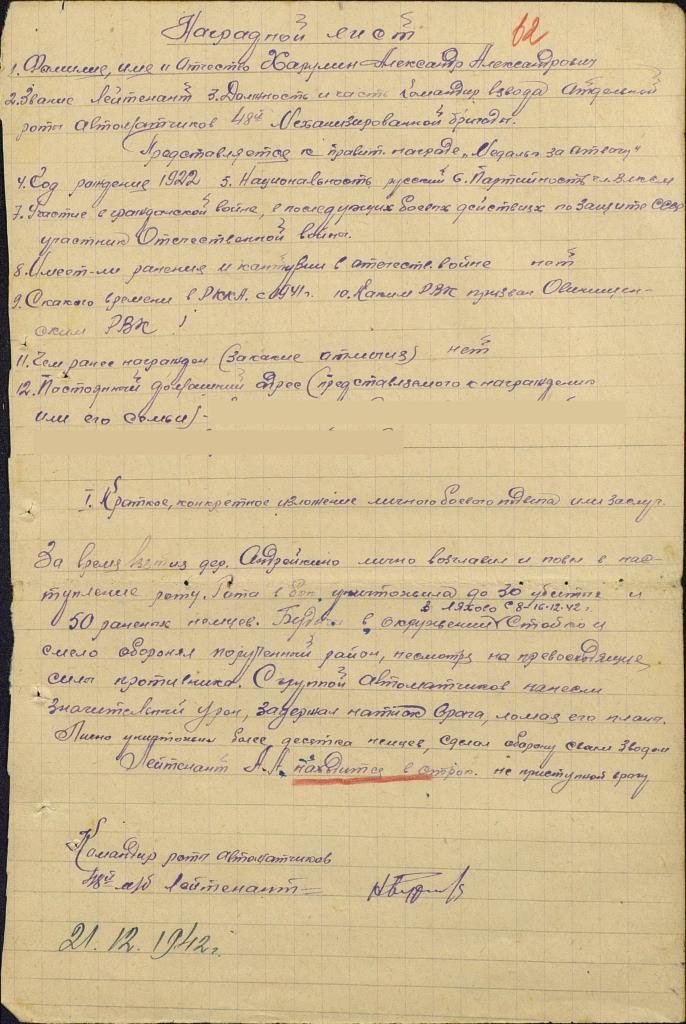 Наградной лист
62
1. Фамилие, име и отчество Харлин Александр Александрович
2. Звание Лейтенант 3. Должность и часть Командир взвода отдельной
роты автоматчиков 48й Механизированной бригады.
Представляется к правит. награде „Медаль за отвагу"
4. Год рождения 1922 5. Национальность русский 6. Партийность чл. влксм
7. Участие в гражданской войне, в последующих боевых действиях по защите СССР
участник Отечественной войны.
8. Имеет-ли ранения и кантузии в отечеств. войне нет
9. С какого времени в РККА. с 1941 г. 10. Каким РВК призван
ским РВК
11. Чем ранее награжден (за какие отличия) нет
12. Постоянный домашний адрес (представляемого к награждению
или его семьи) -
I. Краткое, конкретное изложение личного боевого подвига или заслуг.
За время взятия дер. Андрейкино лично возглавил и повел в нас-
тупление роту. Рота в бою уничтожила до 30 убитые и
в Ляхово с 8-16.12.42 г.
50 раненых немцев. Будучи в окружении стойко и
смело оборонял порученный район, несмотря на превосходящие
силы противника. С группой автоматчиков нанесли
значительный урон, задержал натиск врага, ломая его планы.
Лично уничтожил более десятка немцев, сделал оборону своим взводом
Лейтенант А.А. находится в строю. не приступной врагу
Командир роты автоматчиков
48й м/б Лейтенант =
21.12.1942 г.